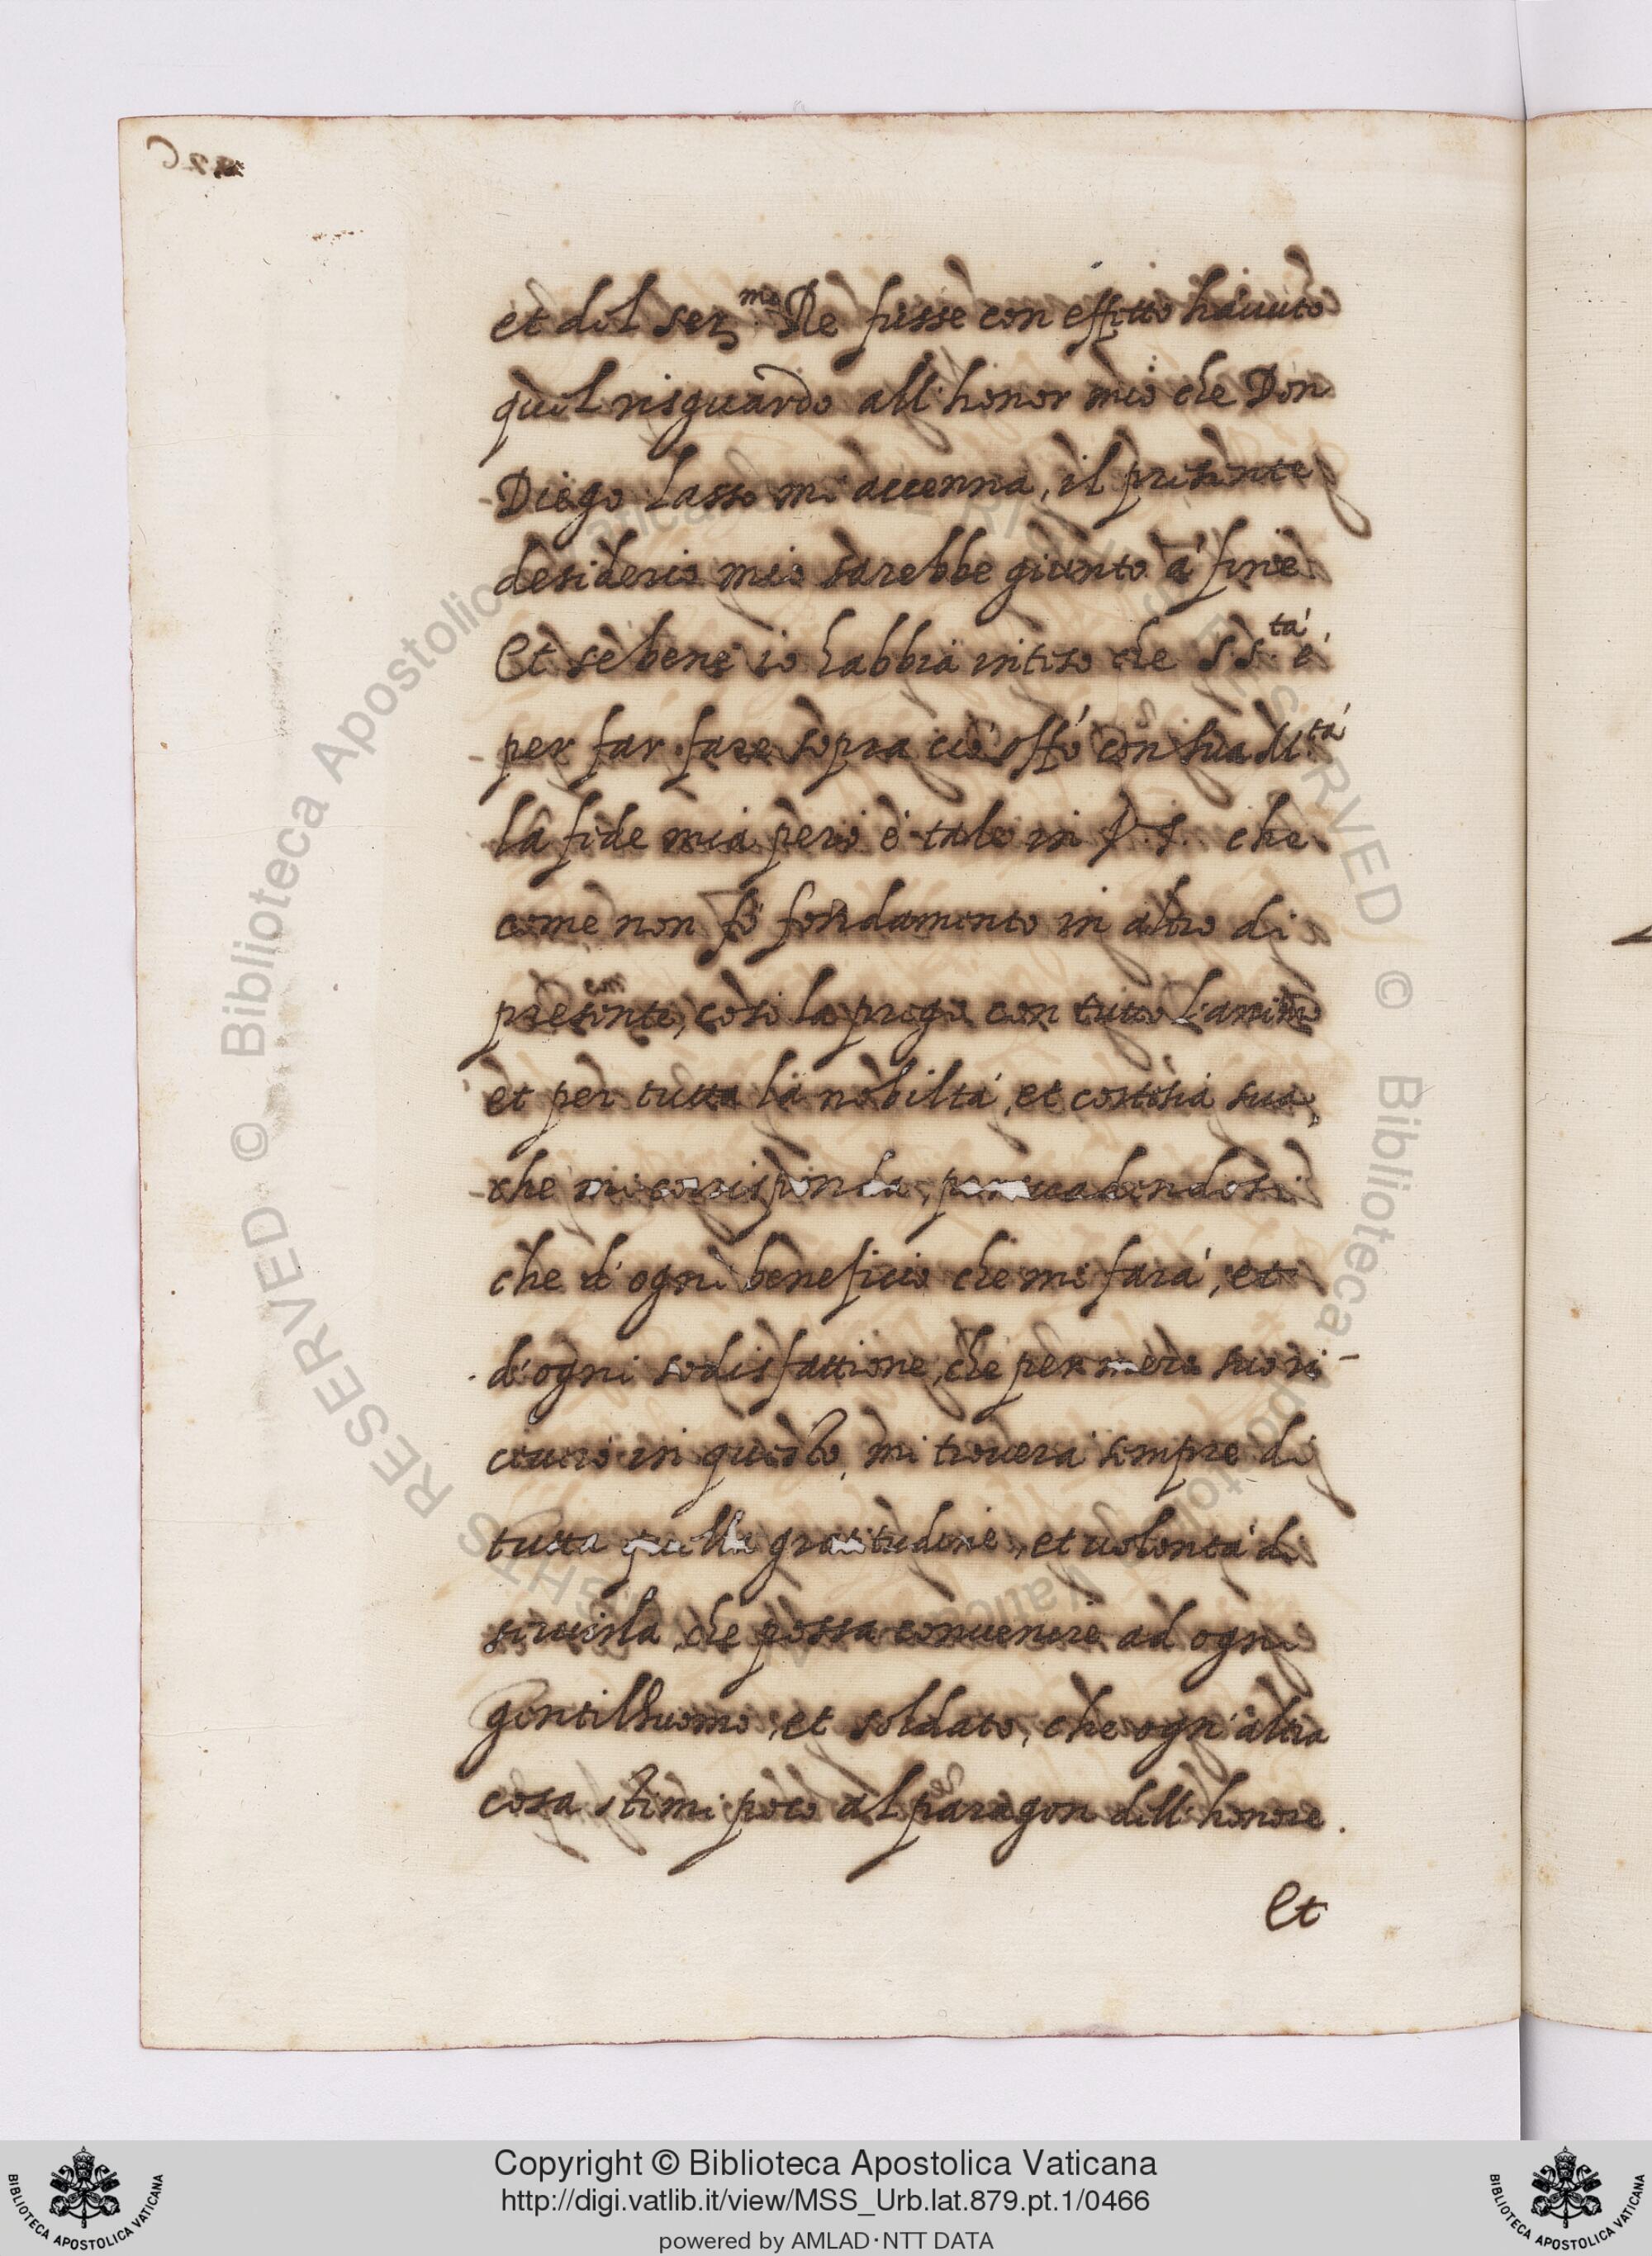 et del Ser.mo Re fusse con effetto havuto
quel risguardo all'honor mio che Don
Diego Lasso mi accenna, il presente
desiderio mio sarebbe giunto a' fine
Et se bene io habbia inteso che S. S.tà é
per far fare sopra ciò offo con sua
la fede mia però è tale in V. S. che
come non fo fondamento in altro di
presente, cosi la prego con tutto l'animo
et per tutta la nobiltà, et cortesia sua,
che mi corrisponda, persuadendosi
che d'ogni beneficio che mi farà, et
d'ogni sodisfattione, che per mero suo ri-
ceverò in questo, mi troverà sempre di
tutta quella gratitudine, et volontà di
servirla, che possa convenire ad ogni
gentilhuomo, et soldato, che ogn'altra
cosa stimi poco al paragon dell'honore.
Et
Copyright © Biblioteca Apostolica Vaticana
http://digi.vatlib.it/view/MSS_Urb.lat.879.pt.1/0466
powered by AMLAD·NTT DATA
BIBLIOTECA APOSTOLICA VATICANA
BIBLIOTECA APOSTOLICA VATICANA